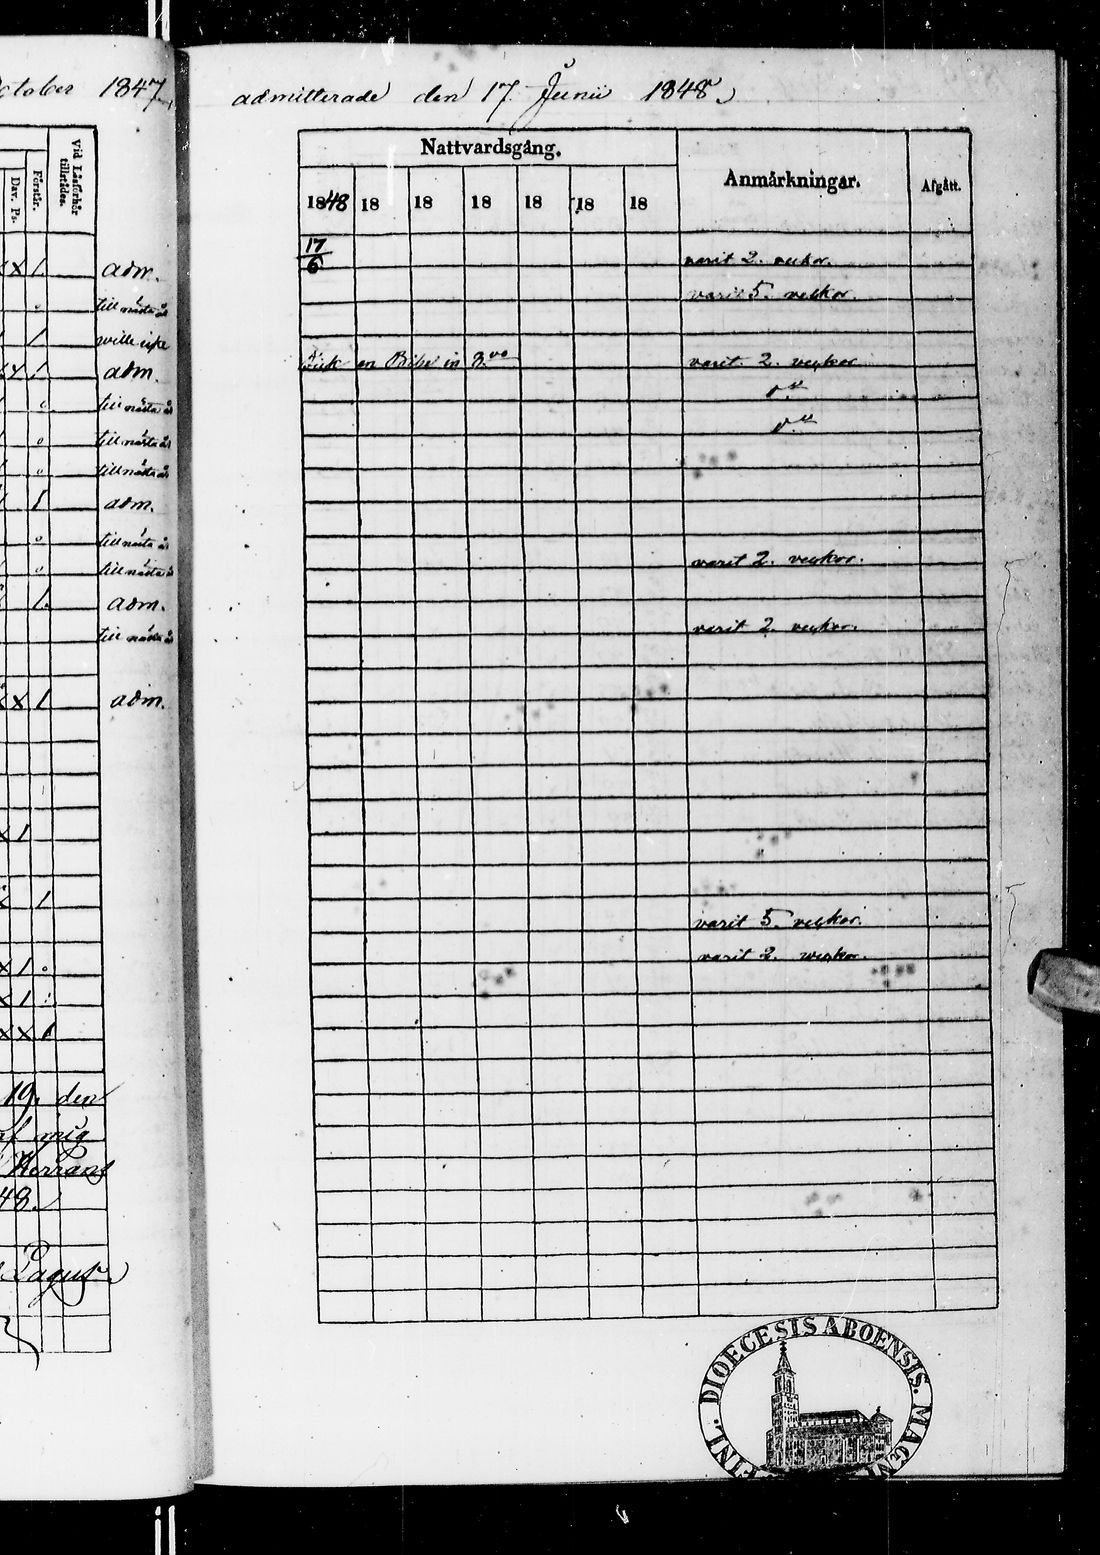 ctober 1847
Vid Läsförhör tillstädes.
Förstår.
Dav. Ps.
x 1. adm.
o till nästa år
1 wille icke
x 1. adm.
o till nästa år
o till nästa år
o till nästa år
1 adm.
o till nästa år
o till nästa år
1. adm.
till nästa år
x x 1 adm.
x 1
1
x 1 o
x 1
x x 1
19. den
af mig
48.
admitterade den 17 Junii 1848
Nattvardsgång. Anmärkningar. Afgått.
1848 18 18 18 18 18 18
17/6 varit 2. veckor.
varit 5. veckor.
Fick en Bibel in 8vo varit 2. veckor
do
do
varit 2. veckor.
varit 2. veckor.
varit 5 veckor.
varit 2. weckor.
FINL. DIOECESIS ABOENSIS. MAGNI